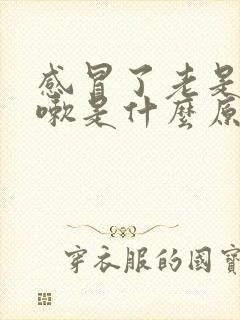 感冒了老是
嗽是什麼原
穿衣服的國寶